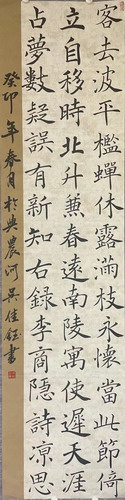 客去波平檻蟬休露滿枝永懷當此節倚
立自移時北斗兼春遠南陵寓使遲天涯
占夢數疑誤有新知右録李商隱詩凉思
癸卯年春月於典農河吳佳鈺書